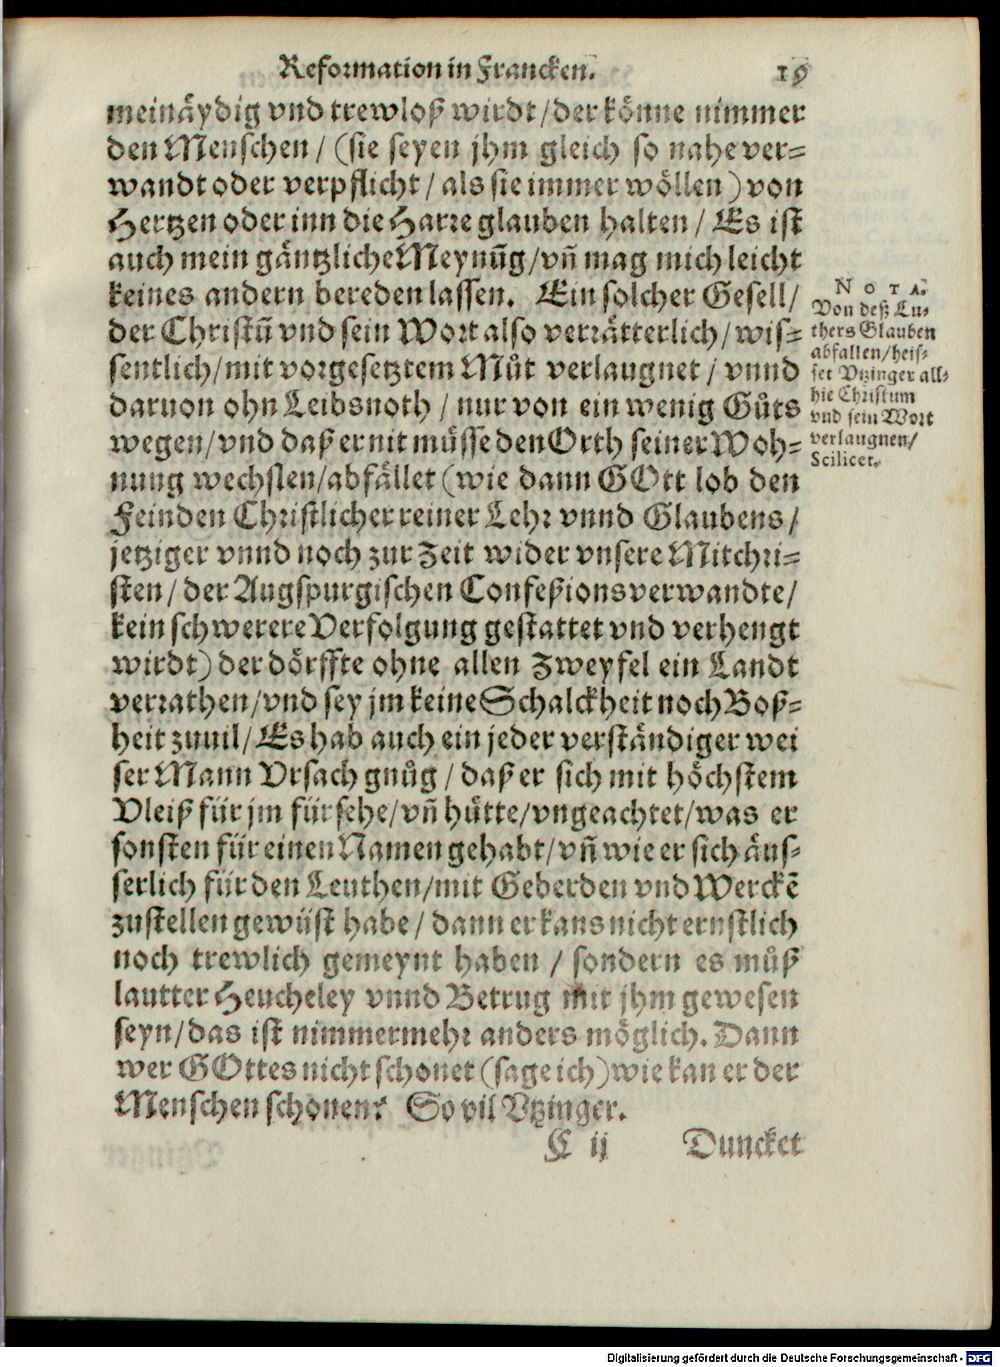 Reformation in Francken. 19
meinäydig vnd trewloß wirdt/der könne nimmer
den Menschen/ (sie seyen jhm gleich so nahe ver=
wandt oder verpflicht/ als sie immer wöllen) von
Hertzen oder inn die Harre glauben halten/ Es ist
auch mein gäntzliche Meynūg/vñ mag mich leicht
keines andern bereden lassen. Ein solcher Gesell/
der Christū vnd sein Wort also verrätterlich/ wis=
sentlich/mit vorgesetztem Můt verlaugnet/ vnnd
daruon ohn Leibsnoth/ nur von ein wenig Gůts
wegen/vnd daß er nit müsse den Orth seiner Woh=
nung wechslen/abfället (wie dann GOtt lob den
Feinden Christlicher reiner Lehr vnnd Glaubens/
jetziger vnnd noch zur Zeit wider vnsere Mitchri=
sten/ der Augspurgischen Confeßionsverwandte/
kein schwerere Verfolgung gestattet vnd verhengt
wirdt) der dörffte ohne allen Zweyfel ein Landt
verrathen/vnd sey jm keine Schalckheit noch Boß=
heit zuuil/ Es hab auch ein jeder verständiger wei
ser Mann Vrsach gnůg/ daß er sich mit höchstem
Vleiß für jm fürsehe/vñ hütte/vngeachtet/was er
sonsten für einen Namen gehabt/vñ wie er sich äus=
serlich für den Leuthen/mit Geberden vnd Werckē
zustellen gewüst habe/ dann er kans nicht ernstlich
noch trewlich gemeynt haben/ sondern es můß
lautter Heucheley vnnd Betrug mit jhm gewesen
seyn/das ist nimmermehr anders möglich. Dann
wer GOttes nicht schonet (sage ich) wie kan er der
Menschen schonen? So vil Vtzinger.
C ij Duncket
NOTA.
Von deß Lu=
thers Glauben
abfallen/heis=
set Vtzinger all=
hie Christum
vnd sein Wort
verlaugnen/
Scilicet.
Digitalisierung gefördert durch die Deutsche Forschungsgemeinschaft - DFG